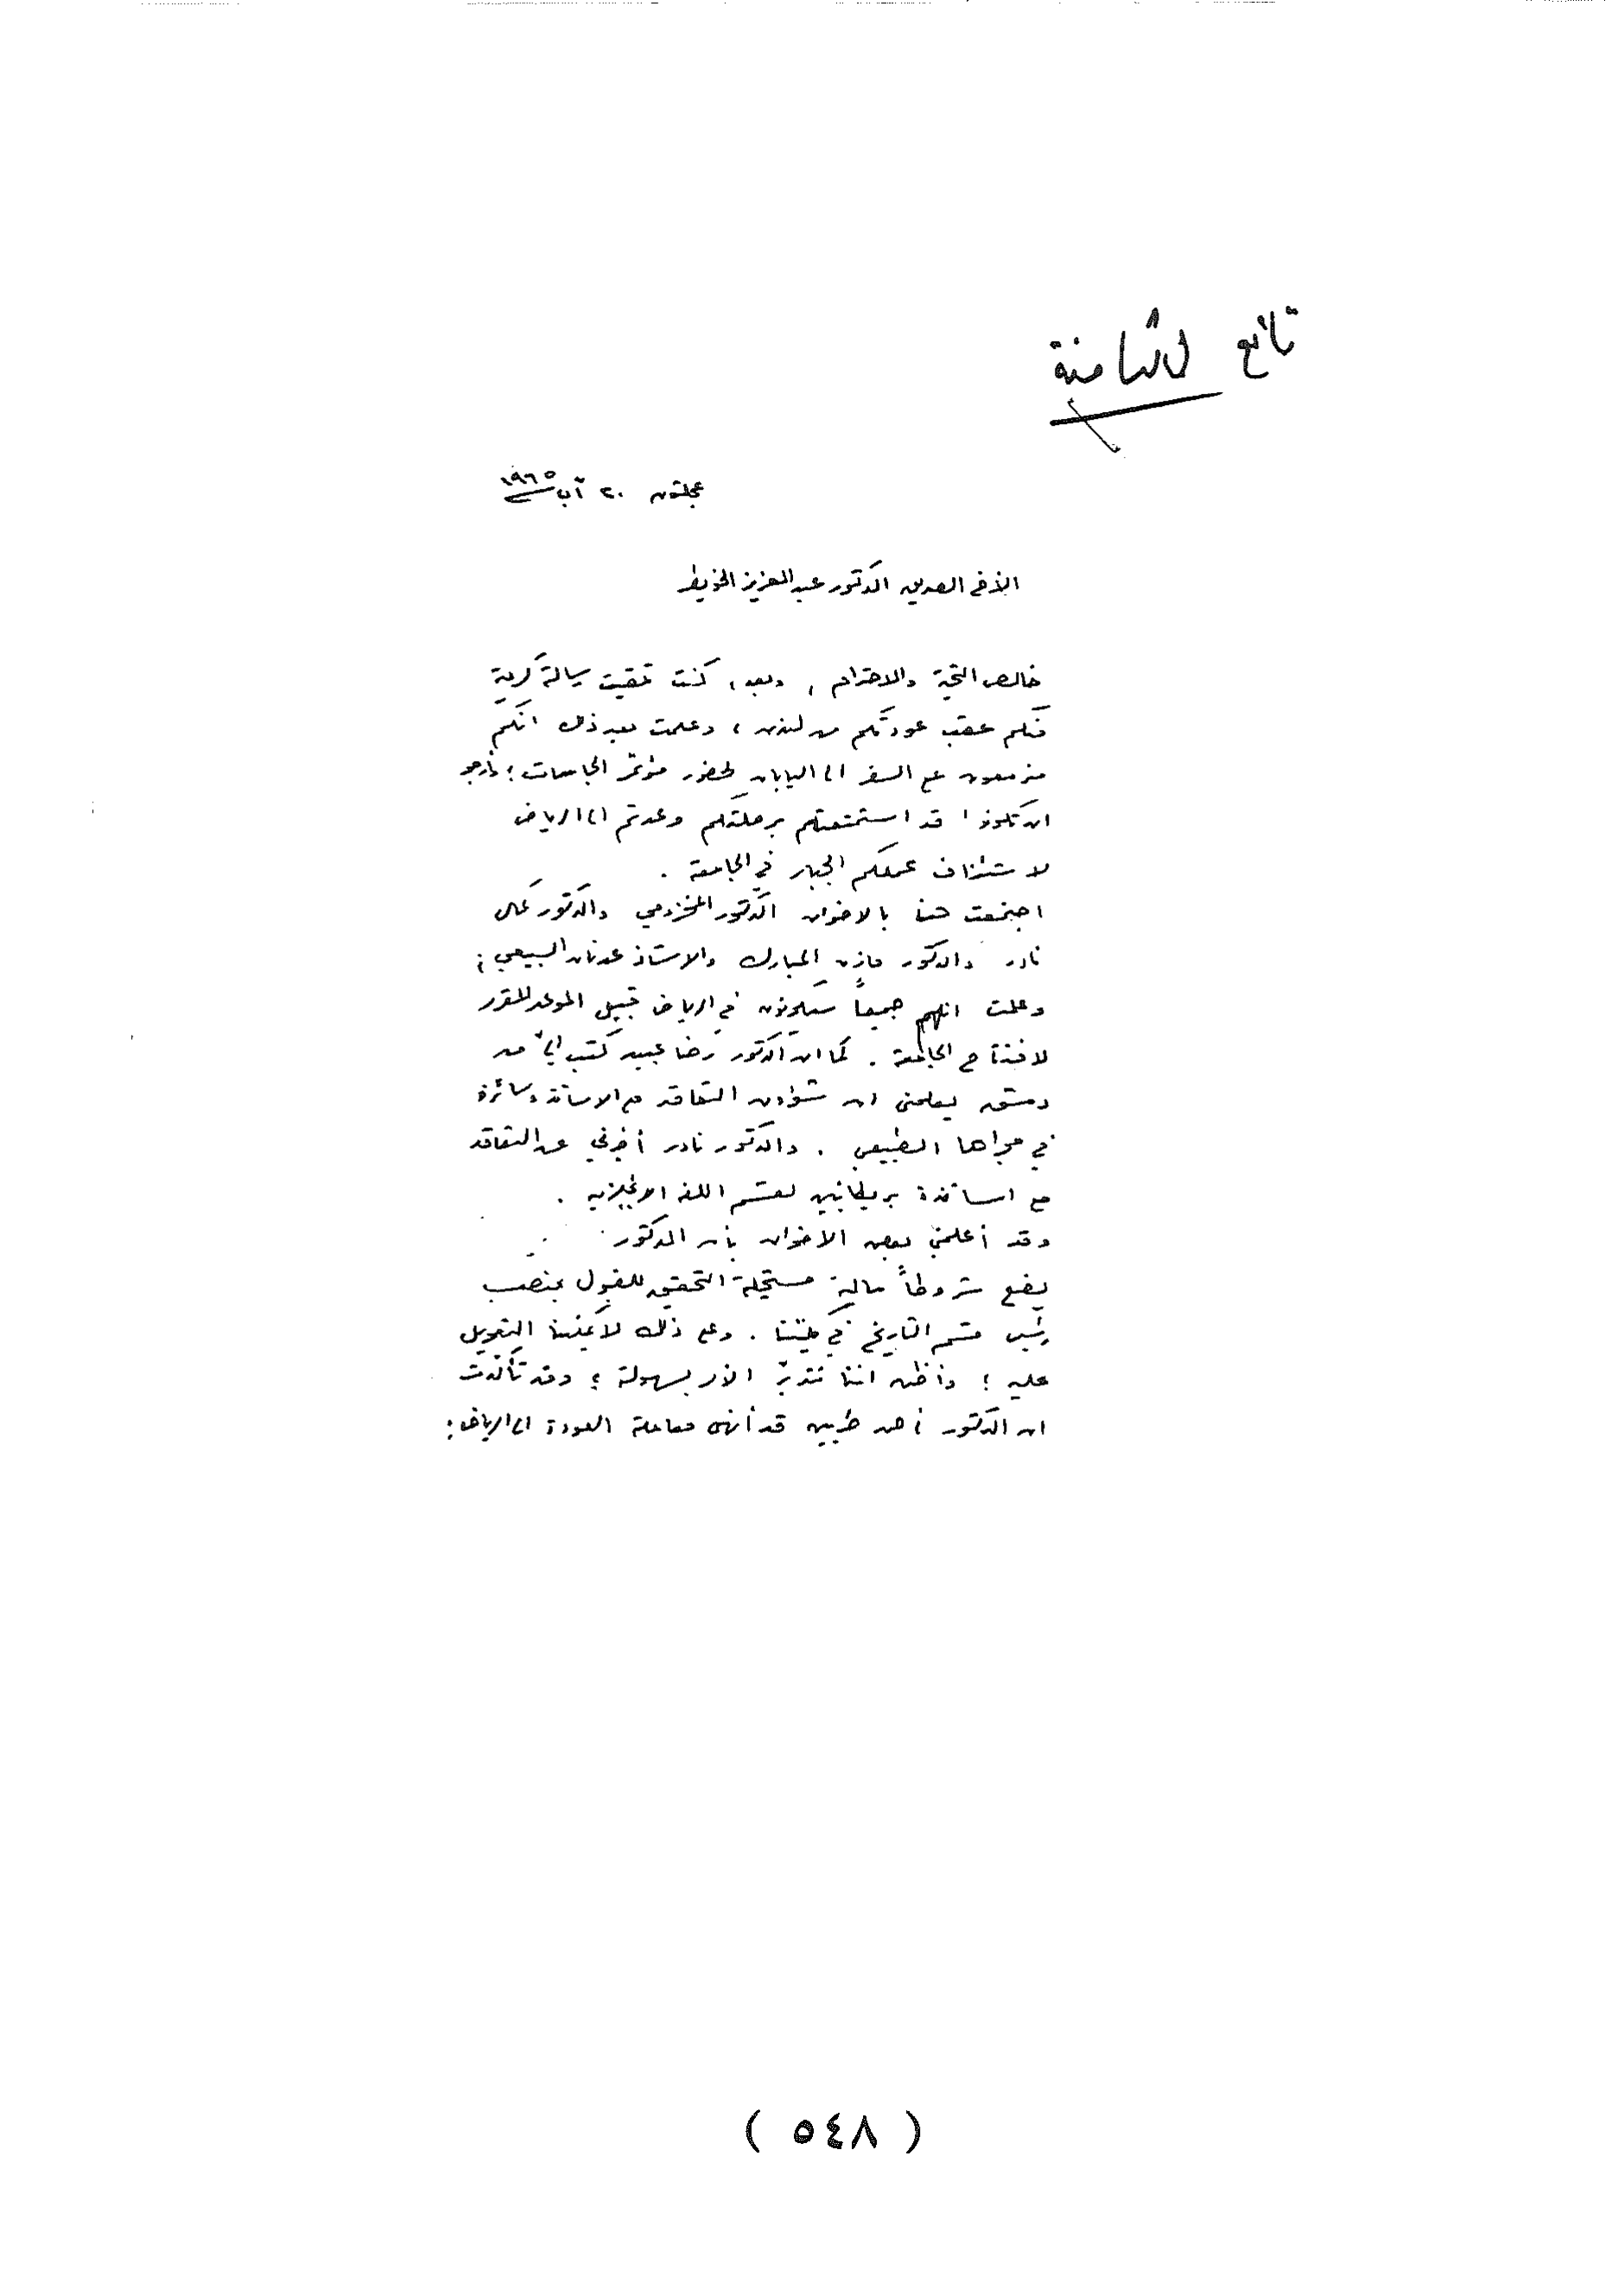 تابع لثامنة
عجلتون ٢٠ آب ١٩٦٥
الأخ الصديق الدكتور عبد العزيز الخويطر
خالص التحية والاحترام ، وبعد ، كنت تلقيت رسالة كريمة
منكم عقب عودتكم من لندن ، وعلمت بعد ذلك انكم
مزمعون على السفر الى اليابان لحضور مؤتمر الجامعات ؛ فأرجو
ان تكونوا قد استمتعتم برحلتكم وعدتم الى الرياض
لاستئناف عملكم الجبار في الجامعة .
اجتمعت هنا بالاخوان الدكتور المخزومي والدكتور كمال
نادر والدكتور مازن المبارك والاستاذ عدنان السبيعي ؛
وعلمت انهم جميعاً سيكونون في الرياض قبيل الموعد المقرر
لافتتاح الجامعة . كما ان الدكتور رضا عبيد كتب اليّ من
دمشق يعلمني ان شؤون التعاقد مع الاساتذة سائرة
في مجراها الطبيعي . والدكتور نادر أخبرني عن التعاقد
مع اساتذة بريطانيين لقسم اللغة الانجليزية .
وقد أعلمني بعض الاخوان بأن الدكتور
يضع شروطاً مالية مستحيلة التحقيق للقبول بمنصب
رئيس قسم التاريخ في كليتنا . وعلى ذلك لا يمكننا التعويل
عليه ؛ وأظن اننا نتدبّر الأمر بسهولة ؛ وقد تأكدت
ان الدكتور أحمد طربين قد أنهى معاملة العودة الى الرياض ؛
( ٥٤٨ )